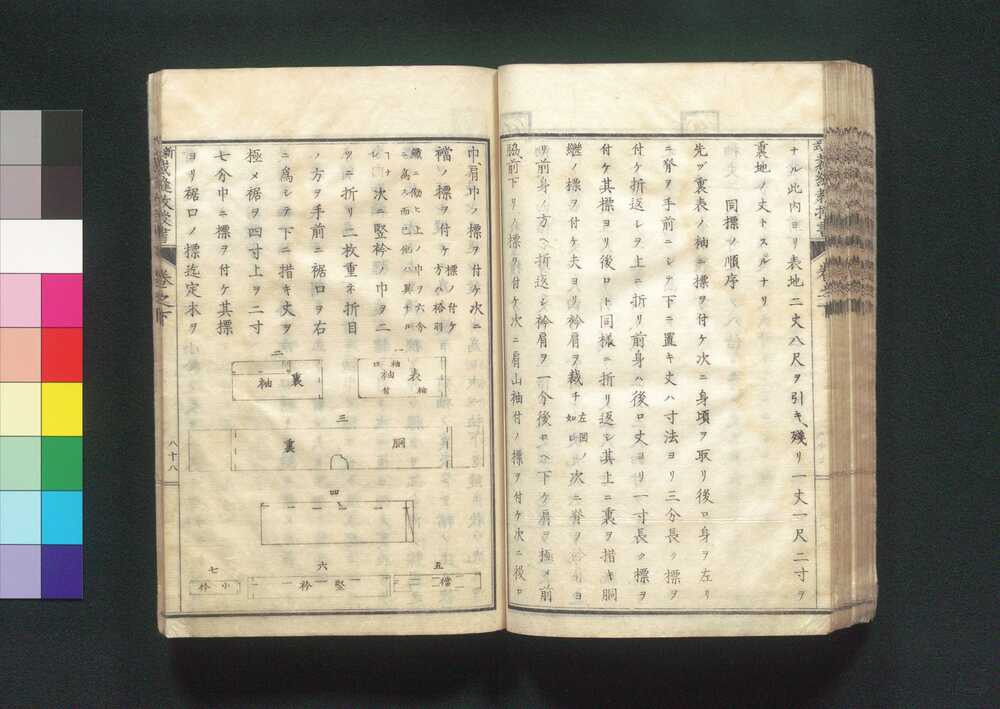 ナル此内ヨリ表地二丈八尺ヲ引キ殘リ一丈一尺二寸ヲ
裏地ノ丈トスルナリ
同標ノ順序
先ヅ裏表ノ袖ニ標ヲ付ケ次ニ身頃ヲ取リ後ロ身ヲ左リ
ニ脊ヲ手前ニシテ下ニ置キ丈ハ寸法ヨリ三分長ク標ヲ
付ケ折返シテ上ニ折リ前身ハ後ロ丈ヨリ一寸長ク標ヲ
付ケ其標ヨリ後ロト同樣ニ折リ返シ其上ニ裏ヲ措キ胴
継ノ標ヲ付ケ夫ヨリ衿肩ヲ裁チ左圖ノ如シ次ニ脊ヲ衿肩ヨ
リ前身ノ方ヘ折返シ衿肩ヲ一分後ロヘ下ケ肩ヲ極メ前
脇前下リノ標ヲ付ケ次ニ肩山袖付ノ標ヲ付ケ次ニ後ロ
巾肩巾ノ標ヲ付ケ次ニ
襠ノ標ヲ付ケ標ノ付ケ方ハ袷羽
織ニ倣ヒ上ノ巾ヲ六分
ニ爲ス而已他ハ異ナル
コナシ次ニ竪衿ノ巾ヲ二
ツニ折リ二枚重ネ折目
ノ方ヲ手前ニ裾口ヲ右
ニ爲シテ下ニ措キ丈ヲ
極メ裾ヲ四寸上ヲ二寸
七分巾ニ標ヲ付ケ其標
ヨリ裾口ノ標迄定木ヲ
一
表袖
袖口
袖付
二
裏袖
三
胴裏
四
五
襠
六
竪衿
七
小衿
卷之下
八十八